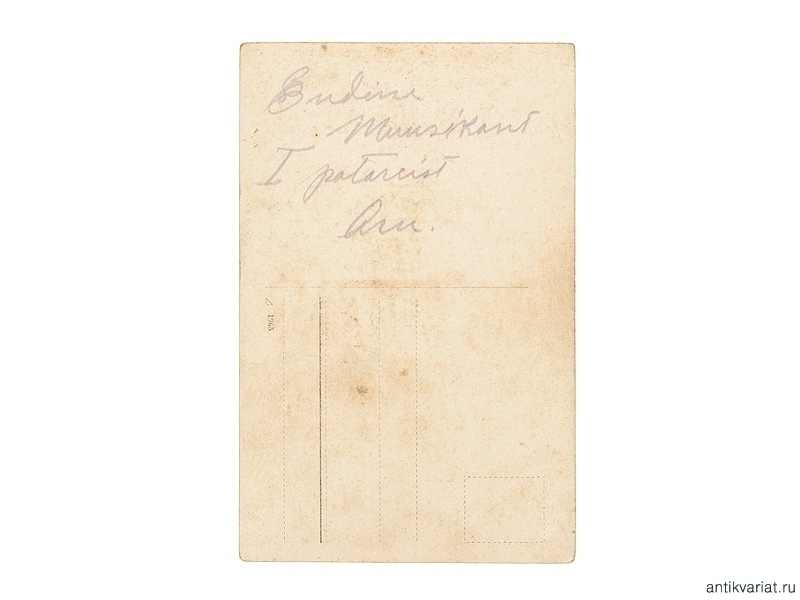 Endine
Muusikant
I patareist
Aru.
Z 1963
antikvariat.ru